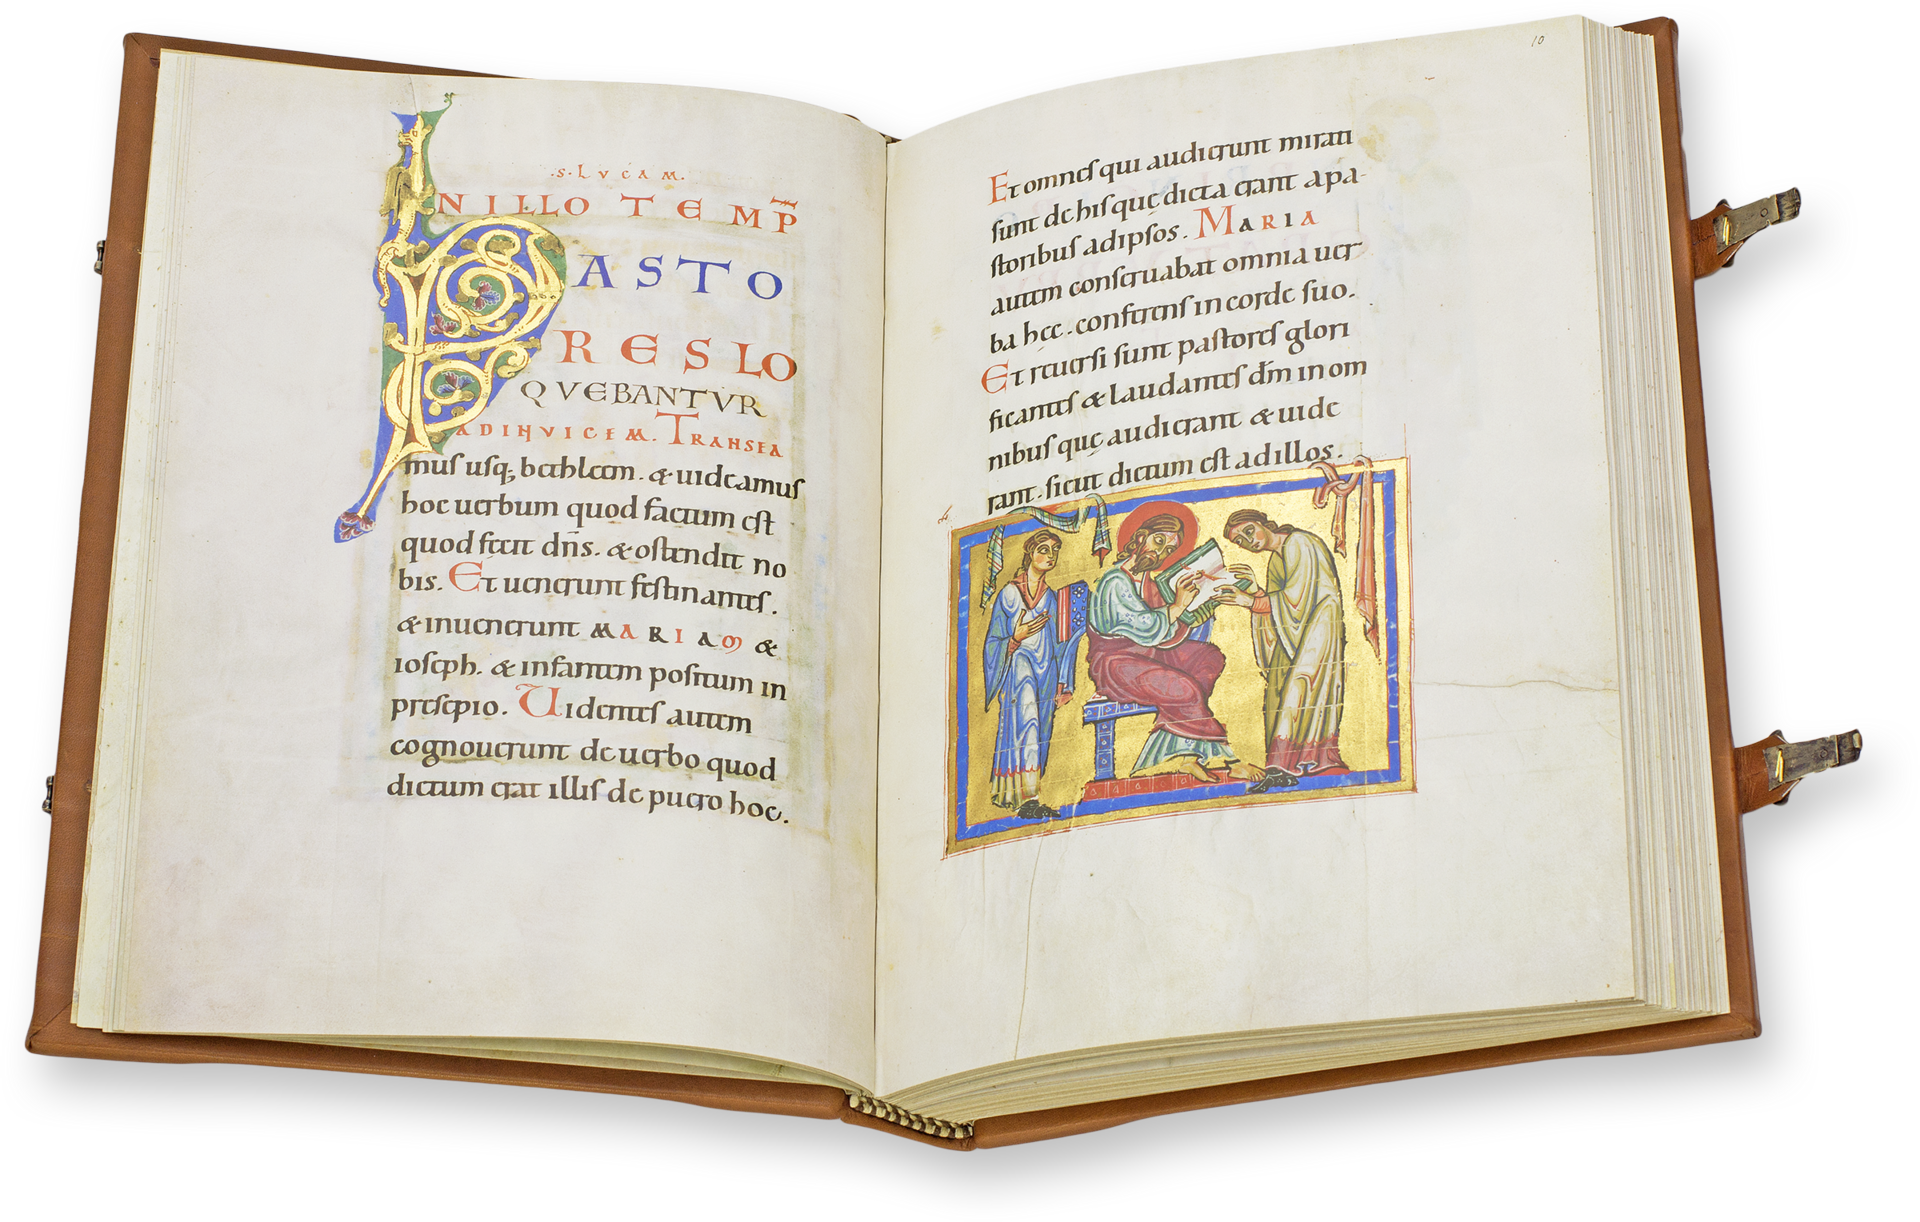 10
.S. LVCAM.
INILLO TEMP̄
PASTO
RES LO
QVEBANTVR
ADINVICEM. TRANSEA
mus usq; bethleem. & uideamus
hoc uerbum quod factum est
quod fecit dn̄s. & ostendit no
bis. Et uenerunt festinantes.
& inuenerunt MARIAM &
ioseph. & infantem positum in
presepio. Uidentes autem
cognouerunt de uerbo quod
dictum erat illis de puero hoc.
Et omnes qui audierunt mirati
sunt de his quę dicta erant a pa-
storibus ad ipsos. MARIA
autem conseruabat omnia uer
ba hęc. conferens in corde suo.
Et reuersi sunt pastores glori
ficantes & laudantes dm̄ in om
nibus quę audierant & uide
rant. sicut dictum est ad illos.